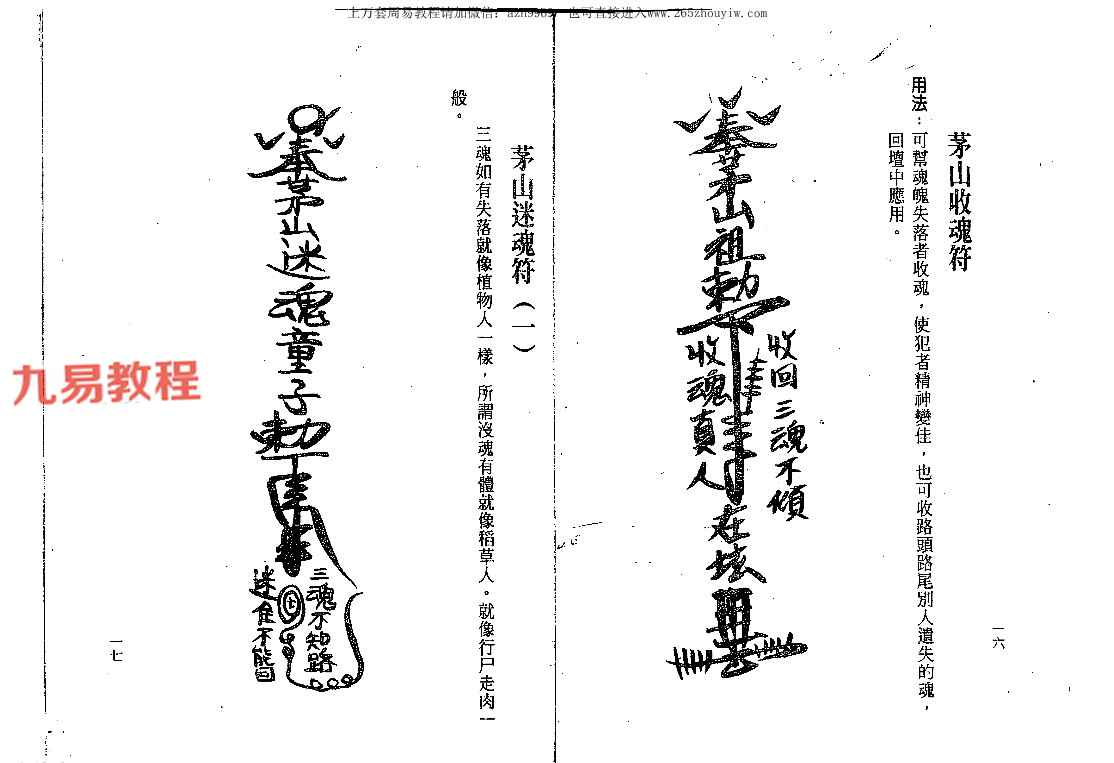 上万套周易教程请加微信：
也可直接进入www.265zhouyiw.com
茅山收魂符
用法：可幫魂魄失落者收魂，使犯者精神變佳，也可收路頭路尾別人遺失的魂，
回壇中應用。
奉茅山祖勅
收回三魂不傾
收魂真人
在坛
一六
茅山迷魂符（一）
三魂如有失落就像植物人一樣，所謂沒魂有體就像稻草人。就像行尸走肉一
般。
奉茅山迷魂童子勅
三魂不知路
迷住不能回
一七
九易教程